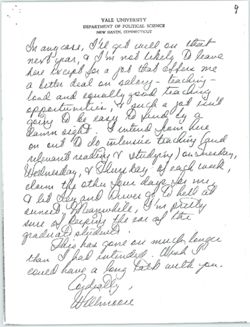 4
YALE UNIVERSITY
DEPARTMENT OF POLITICAL SCIENCE
NEW HAVEN, CONNECTICUT
In any case, I'll get well on that
next year, & I'm not likely to leave
here except for a job that offers me
a better deal on salary – teaching –
load and equally good teaching
opportunities, & such a job isn't
going to be easy to find by a
damn sight. I intend from here
on out to do intensive teaching (and
relevant reading & studying) on Tuesday,
Wednesday, & Thursday of each week,
claim the other four days for me
& let Day and Driver go to hell at
Meanwhile, I'm pretty
sure of keeping the ear of the
graduate students.
This has gone on much longer
than I had intended. Wish I
could have a long talk with you.
Cordially,
Willmoore